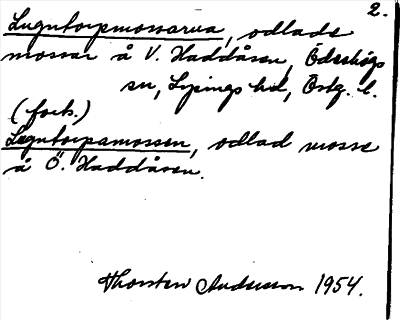 2.
Lugntorpmossarna, odlade
mossar å V. Haddåsen, Ödeshögs
sn, Lysings hd, Östg. l.
(forts.)
Lugntorpamossen, odlad mosse
å Ö. Haddåsen.
Thorsten Andersson 1954.